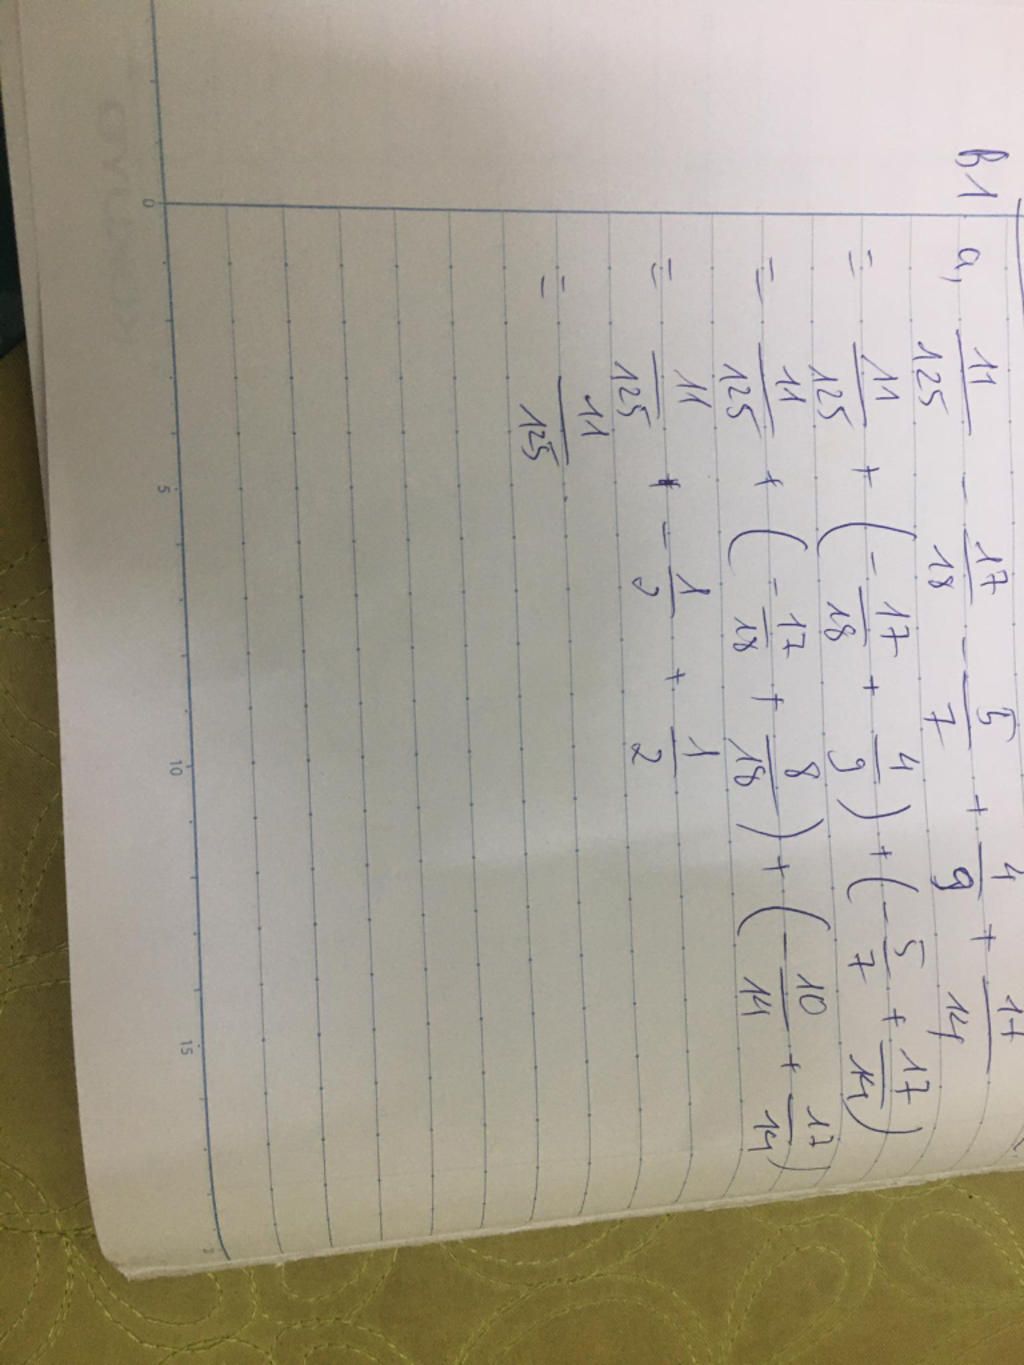 B1 a, 11/125 - 17/18 - 5/7 + 4/9 + 17/14
= 11/125 + (- 17/18 + 4/9) + (- 5/7 + 17/14)
= 11/125 + (- 17/18 + 8/18) + (- 10/14 + 17/14)
= 11/125 + - 1/2 + 1/2
= 11/125
0 5 10 15